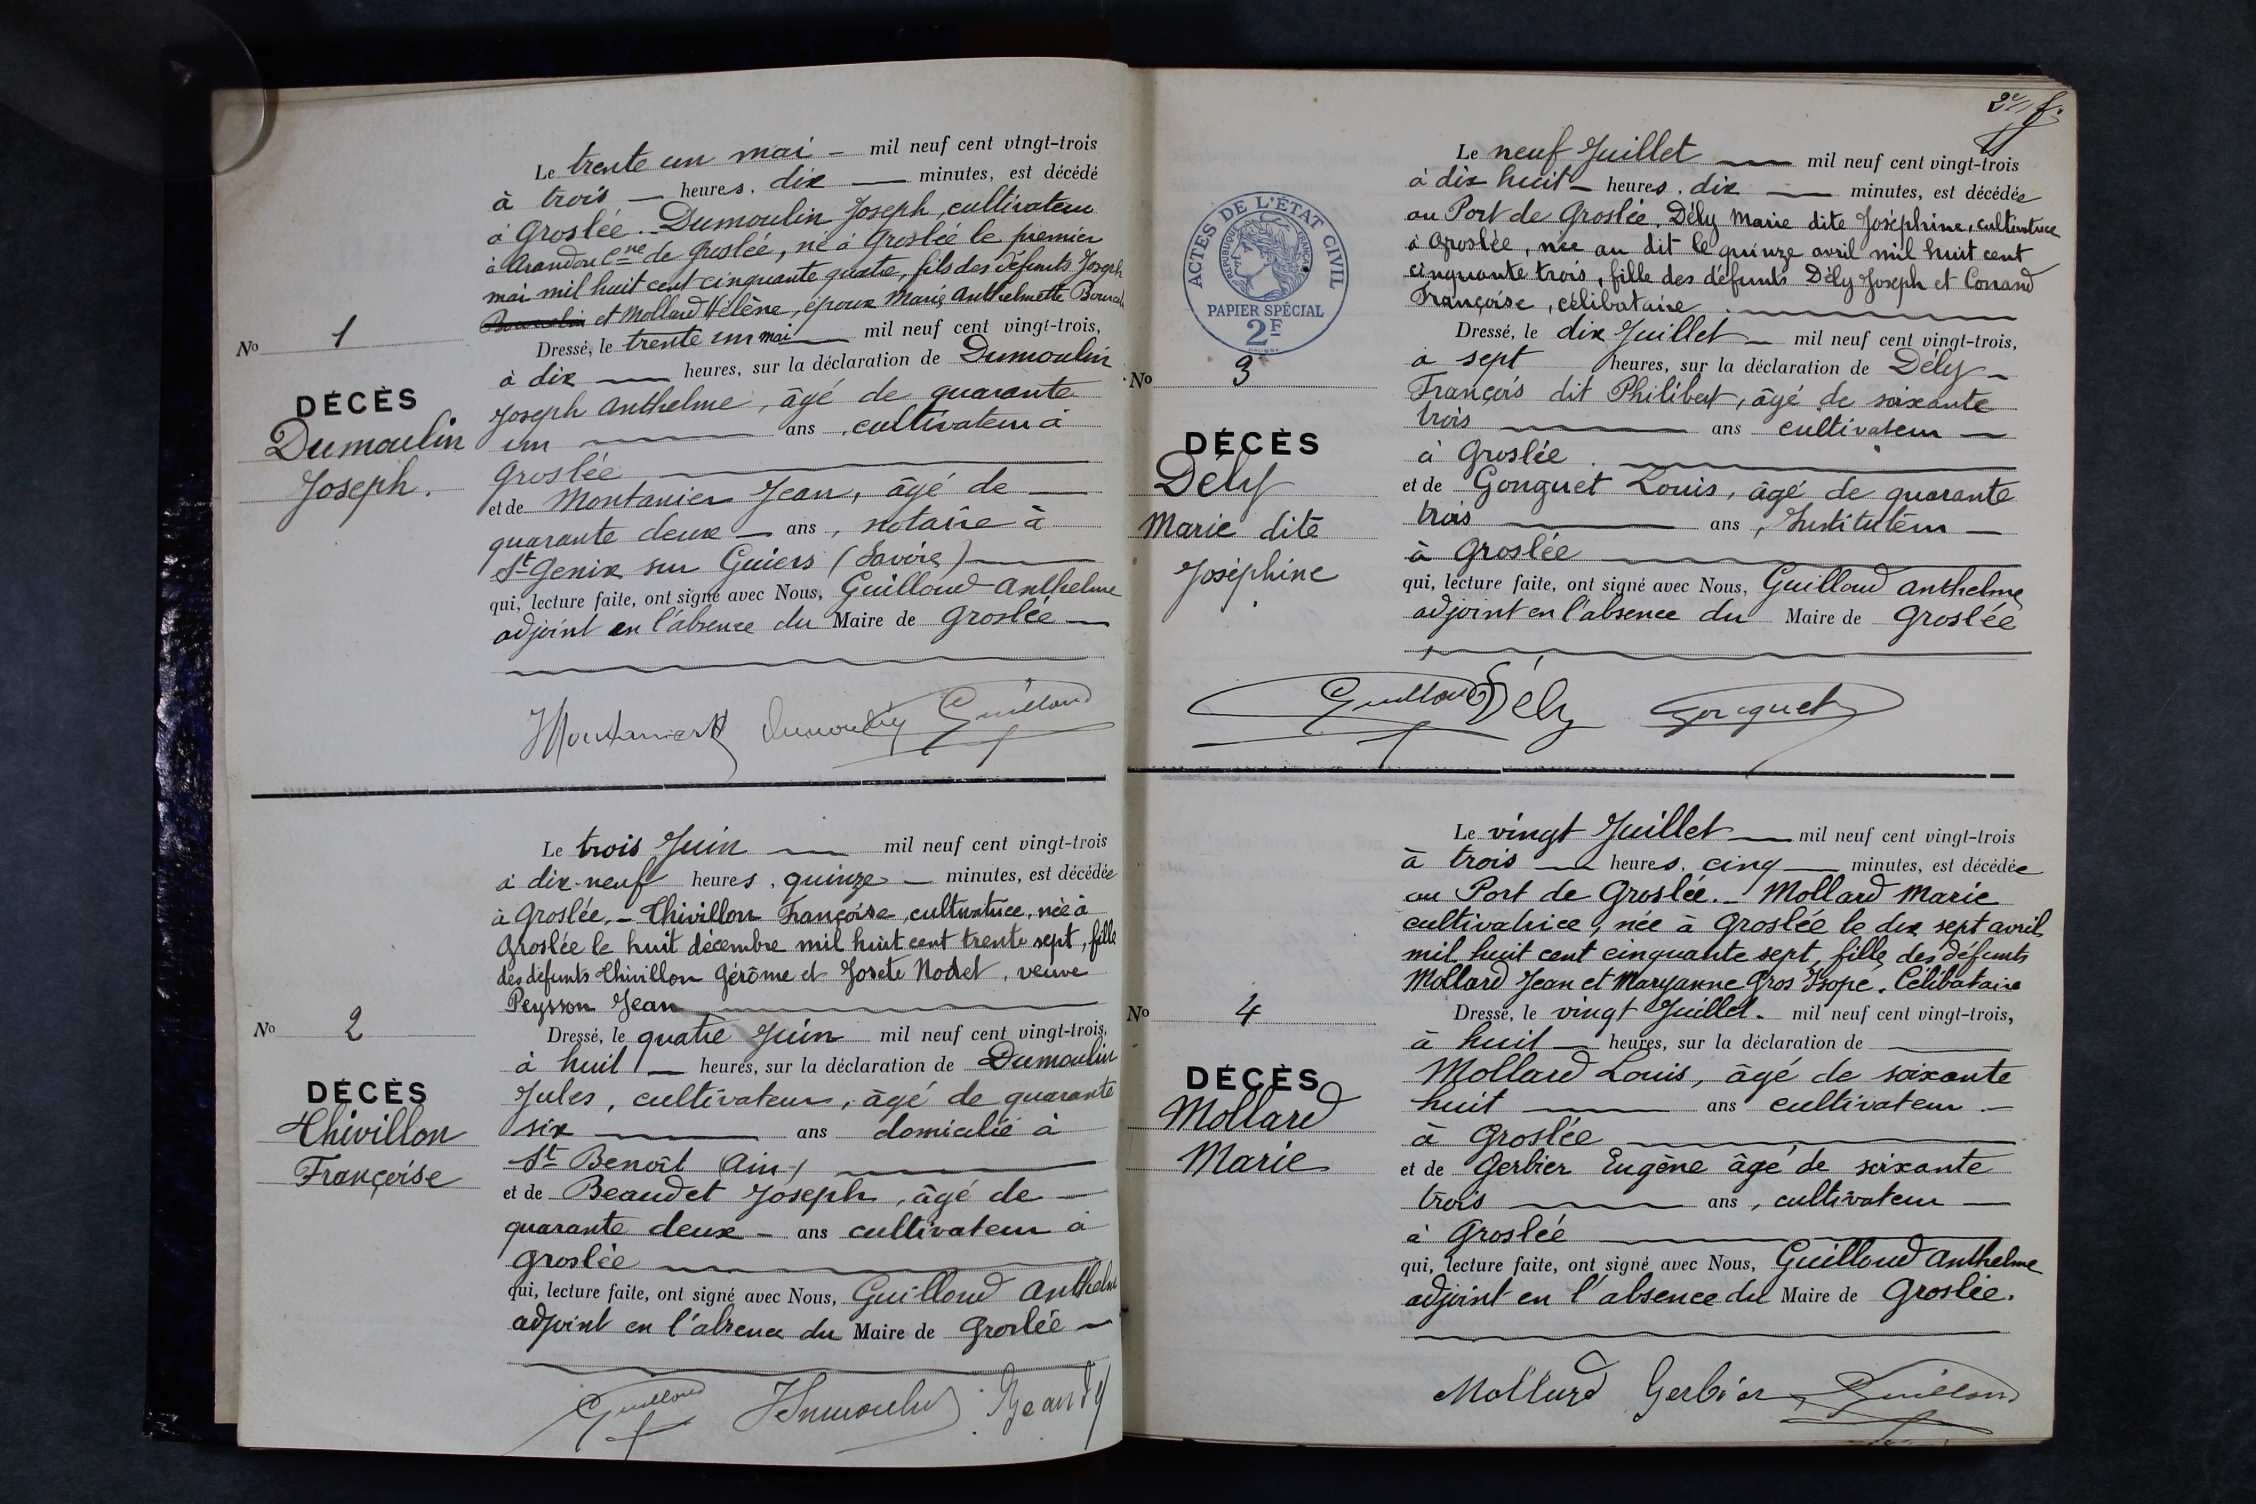 Le trente un mai — mil neuf cent vingt-trois
à trois — heures. dix — minutes, est décédé
à Groslée. Dumoulin Joseph, cultivateur
à Arandon Cne de Groslée, né à Groslée le premier
mai mil huit cent cinquante quatre, fils des défunts Joseph
et Mollard Hélène, époux Marie Anthelmette
No 1
Dressé, le trente un mai — mil neuf cent vingt-trois,
à dix — heures, sur la déclaration de Dumoulin
DÉCÈS
Dumoulin
Joseph.
Joseph Anthelme, âgé de quarante
un — ans, cultivateur à
Groslée
et de Montanier Jean, âgé de —
quarante deux — ans, notaire à
St Genix sur Guiers (Savoie)
qui, lecture faite, ont signé avec Nous, Guilloud Anthelme
adjoint en l'absence du Maire de Groslée —
Montanier Dumoulin Guilloud
Le trois Juin — mil neuf cent vingt-trois
à dix-neuf heures, quinze — minutes, est décédée
à Groslée. — Chivillon Françoise, cultivatrice, née à
Groslée le huit décembre mil huit cent trente sept, fille
des défunts Chivillon Gérôme et Josete Nodet, veuve
Peysson Jean
No 2
Dressé, le quatre Juin mil neuf cent vingt-trois,
à huit — heures, sur la déclaration de Dumoulin
DÉCÈS
Chivillon
Françoise
Jules, cultivateur, âgé de quarante
six — ans domicilié à
St Benoît (Ain)
et de Beaudet Joseph, âgé de —
quarante deux — ans cultivateur à
Groslée
qui, lecture faite, ont signé avec Nous, Guilloud Anthelme
adjoint en l'absence du Maire de Groslée —
Guilloud JDumoulin
2e f.
Le neuf Juillet — mil neuf cent vingt-trois
à dix huit — heures. dix — minutes, est décédée
au Port de Groslée. Dély Marie dite Joséphine, cultivatrice
à Groslée, née au dit le quinze avril mil huit cent
cinquante trois, fille des défunts Dély Joseph et Conand
Françoise, célibataire.
ACTES DE L'ÉTAT CIVIL
RÉPUBLIQUE FRANÇAISE
PAPIER SPÉCIAL
2F
Dressé, le dix Juillet — mil neuf cent vingt-trois,
à sept heures, sur la déclaration de Dély —
No 3
DÉCÈS
Dély
Marie dite
Joséphine
François dit Philibert, âgé de soixante
trois — ans cultivateur —
à Groslée.
et de Gonguet Louis, âgé de quarante
trois — ans, Instituteur —
à Groslée
qui, lecture faite, ont signé avec Nous, Guilloud Anthelme
adjoint en l'absence du Maire de Groslée
Guilloud Dély Gonguet
Le vingt Juillet — mil neuf cent vingt-trois
à trois — heures. cinq — minutes, est décédée
au Port de Groslée. — Mollard Marie
cultivatrice, née à Groslée le dix sept avril
mil huit cent cinquante sept, fille des défunts
Mollard Jean et Maryanne Gros Isope. Célibataire
No 4
Dressé, le vingt Juillet. mil neuf cent vingt-trois,
à huit — heures, sur la déclaration de —
DÉCÈS
Mollard
Marie
Mollard Louis, âgé de soixante
huit — ans cultivateur —
à Groslée
et de Gerbier Eugène âgé de soixante
trois — ans, cultivateur —
à Groslée
qui, lecture faite, ont signé avec Nous, Guilloud Anthelme
adjoint en l'absence du Maire de Groslée.
Mollard Gerbier Guilloud